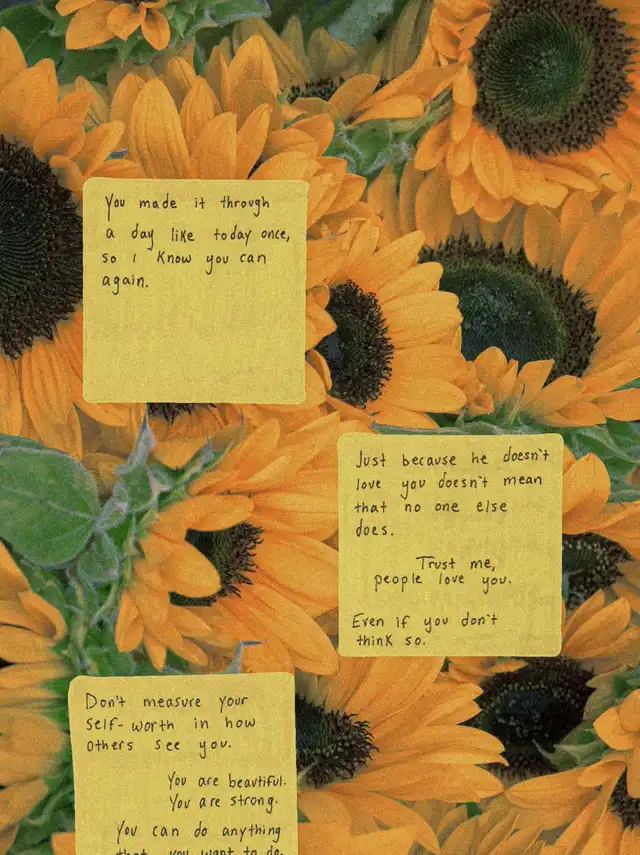 You made it through
a day like today once,
so I know you can
again.
Just because he doesn't
love you doesn't mean
that no one else
does.
Trust me,
people love you.
Even if you don't
think so.
Don't measure your
self-worth in how
others see you.
You are beautiful.
You are strong.
You can do anything
that you want to do.